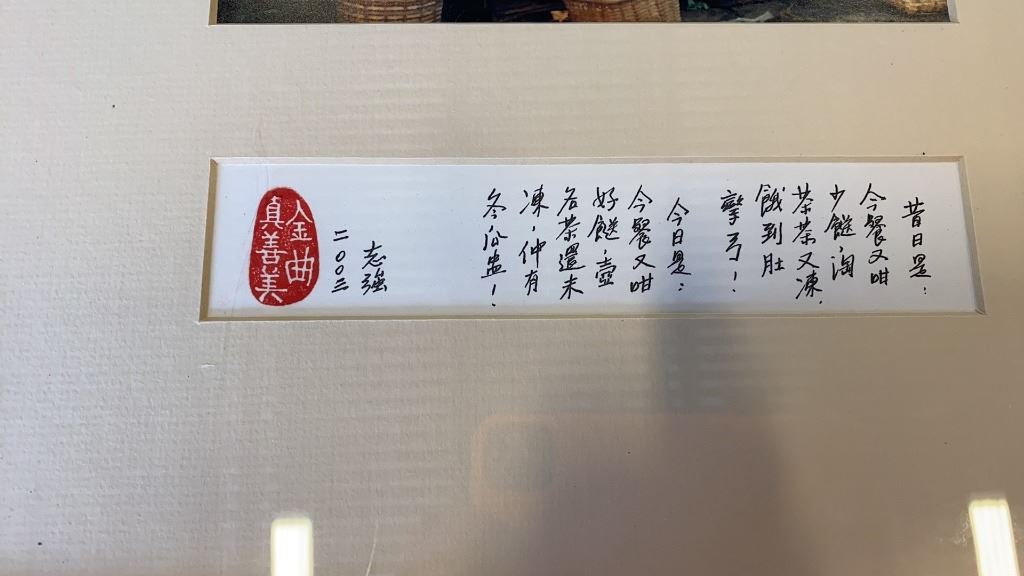 昔日是：
今餐又咁
少餸，淘
茶茶又凍，
餓到肚
孿弓！
今日是：
今餐又咁
好餸，壺
名茶還未
凍，仲有
冬瓜盅！
志強
二〇〇三
金曲
真善美